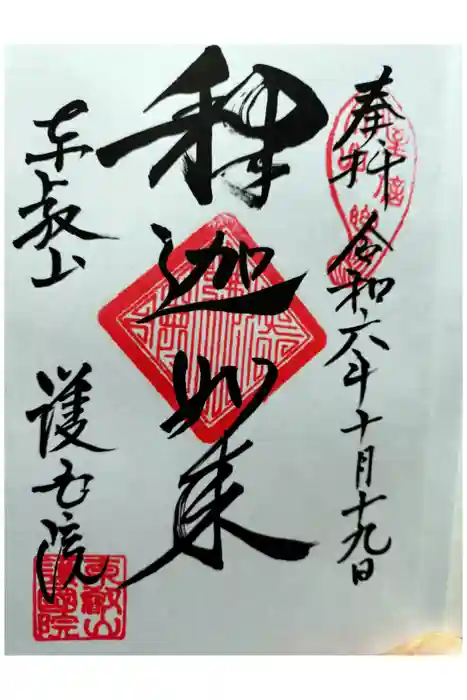 奉拝 令和六年十月十九日
釋迦如来
東叡山
護国院
東叡山
護國院